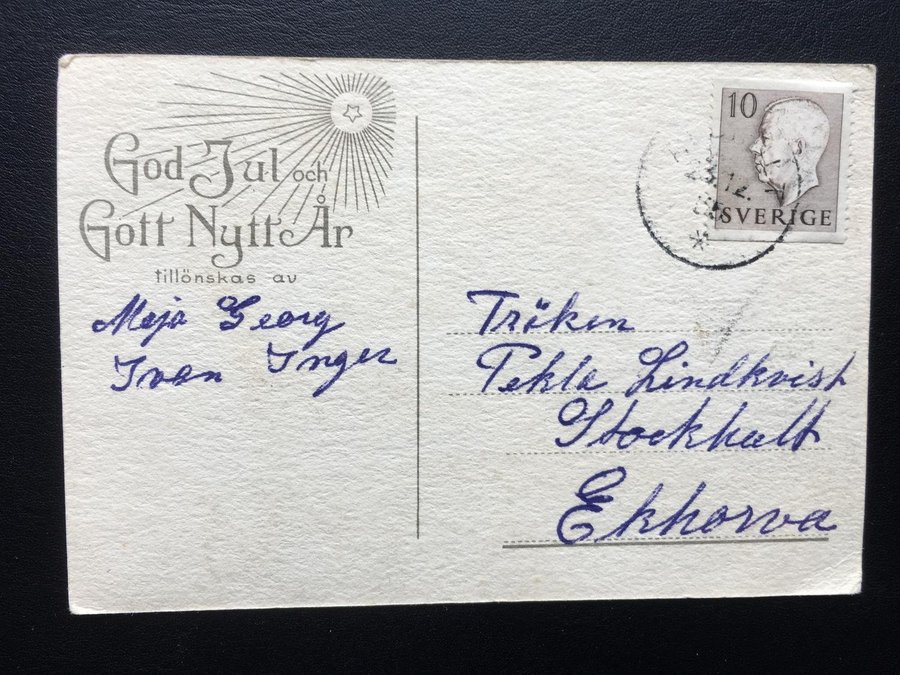 God Jul och
Gott Nytt År
tillönskas av
Maja Georg
Ivan Inger
10
SVERIGE
12.
Fröken
Tekla Lindkvist
Stockhult
Ekhorva